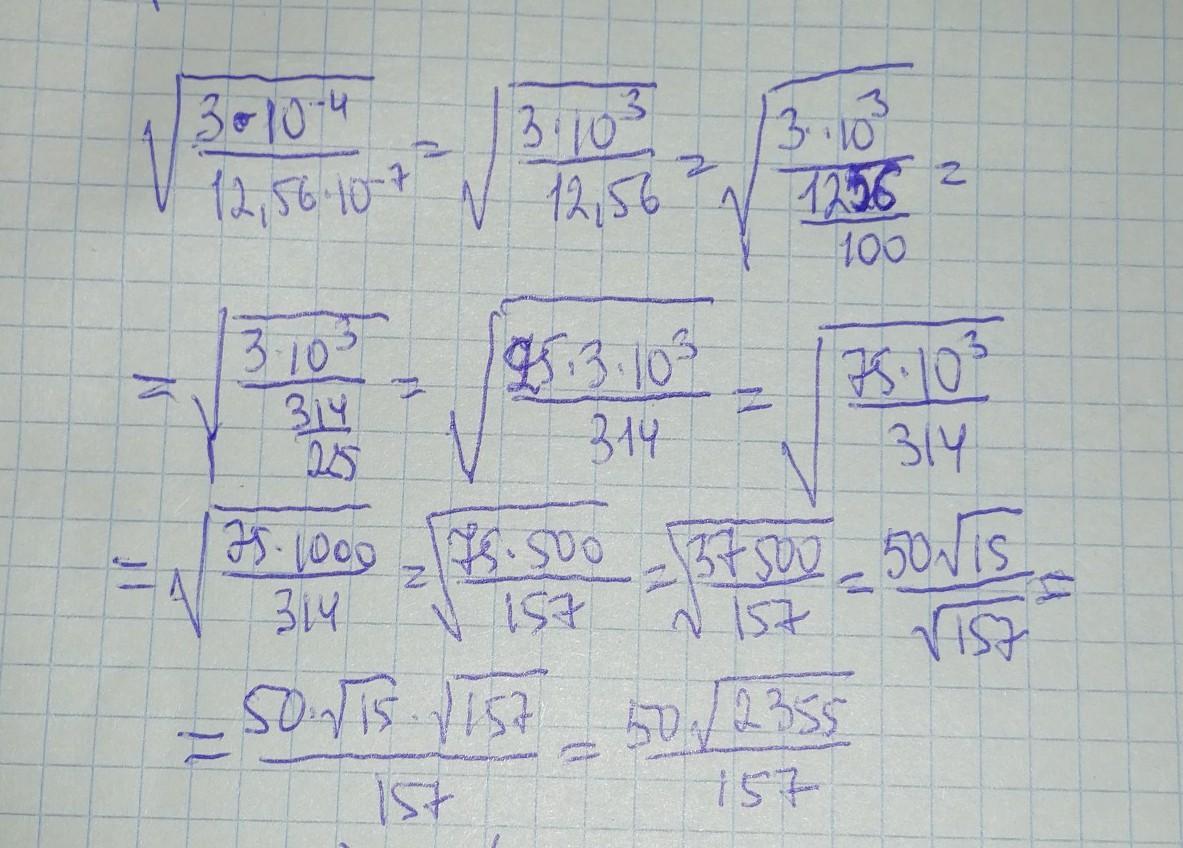 √(3·10⁻⁴/12,56·10⁻⁷) = √(3·10³/12,56) = √(3·10³/(1256/100)) =
= √(3·10³/(314/25)) = √(25·3·10³/314) = √(75·10³/314)
= √(75·1000/314) = √(75·500/157) = √(37500/157) = 50√15/√157 =
= 50·√15·√157/157 = 50√2355/157